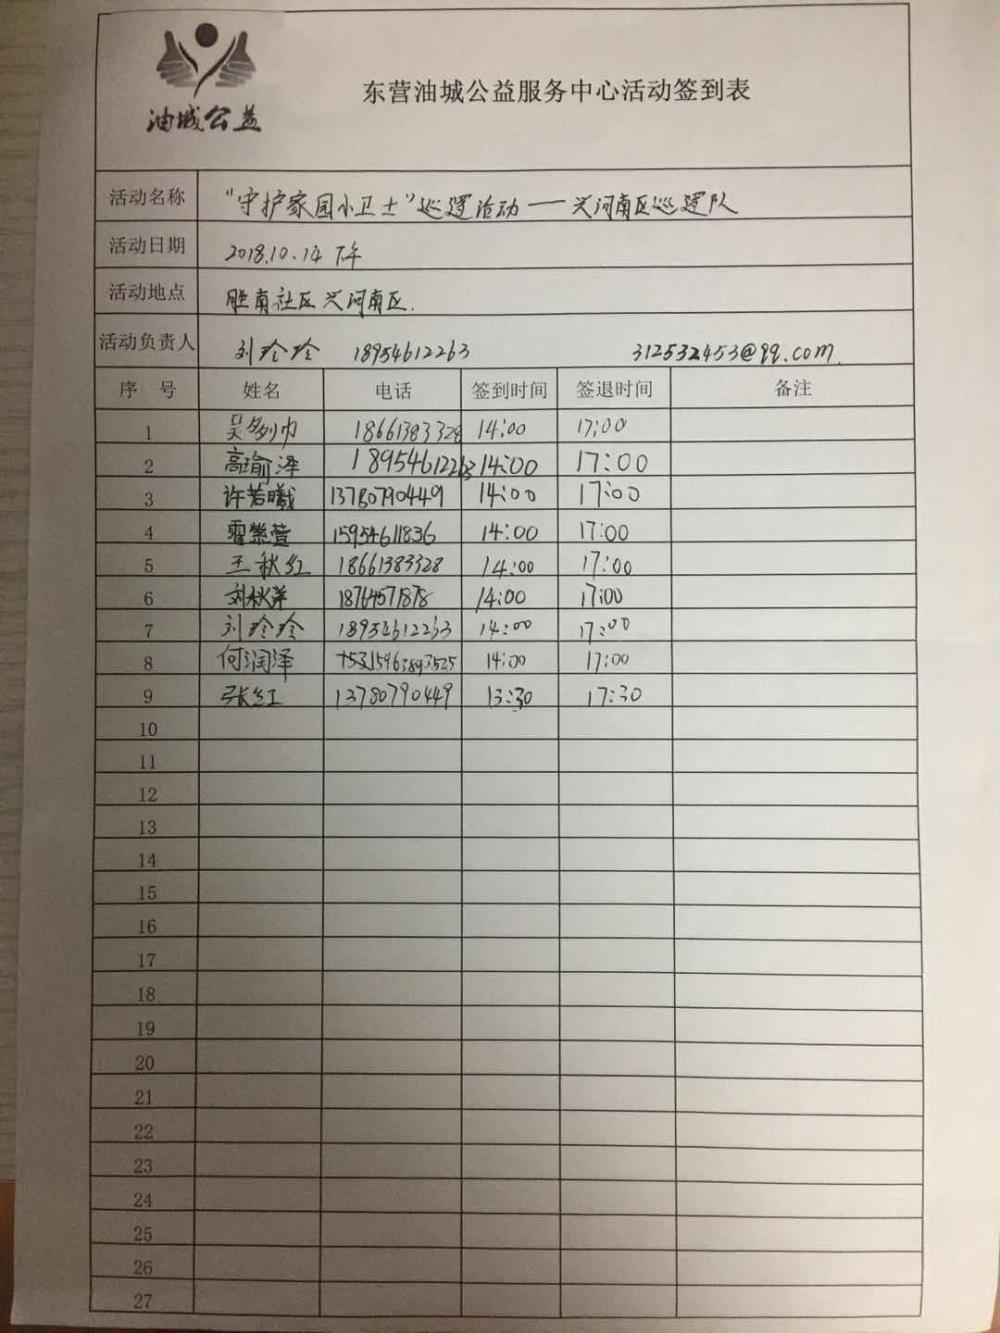 油城公益
东营油城公益服务中心活动签到表
活动名称 “守护家园小卫士”巡逻活动——兴河南区巡逻队
活动日期 2018.10.14 下午
活动地点 胜南社区兴河南区.
活动负责人 刘玲玲 18954612263 312532453@qq.com.
序 号 姓名 电话 签到时间 签退时间 备注
1 吴 18661383328 14:00 17:00
2 高瑜泽 18954612263 14:00 17:00
3 许若曦 13780790449 14:00 17:00
4 霍紫萱 15954611836 14:00 17:00
5 王秋红 18661383328 14:00 17:00
6 刘秋萍 18764571878 14:00 17:00
7 刘玲玲 18954612263 14:00 17:00
8 何润泽 14:00 17:00
9 张红 13780790449 13:30 17:30
10
11
12
13
14
15
16
17
18
19
20
21
22
23
24
25
26
27